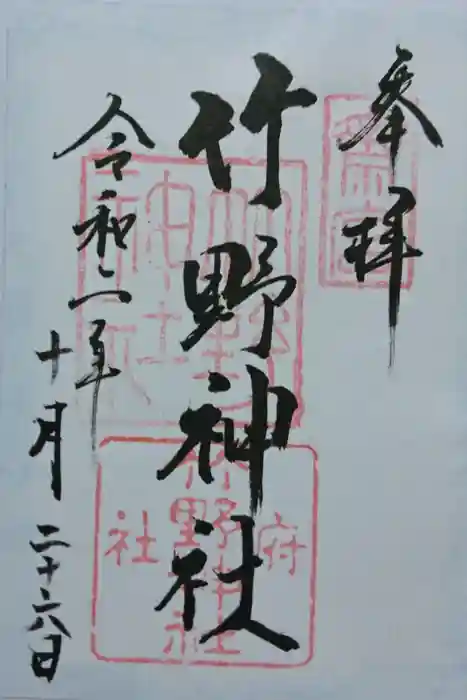 奉拝
竹野神社
令和二年
十月
二十六日
府
竹野神社
社